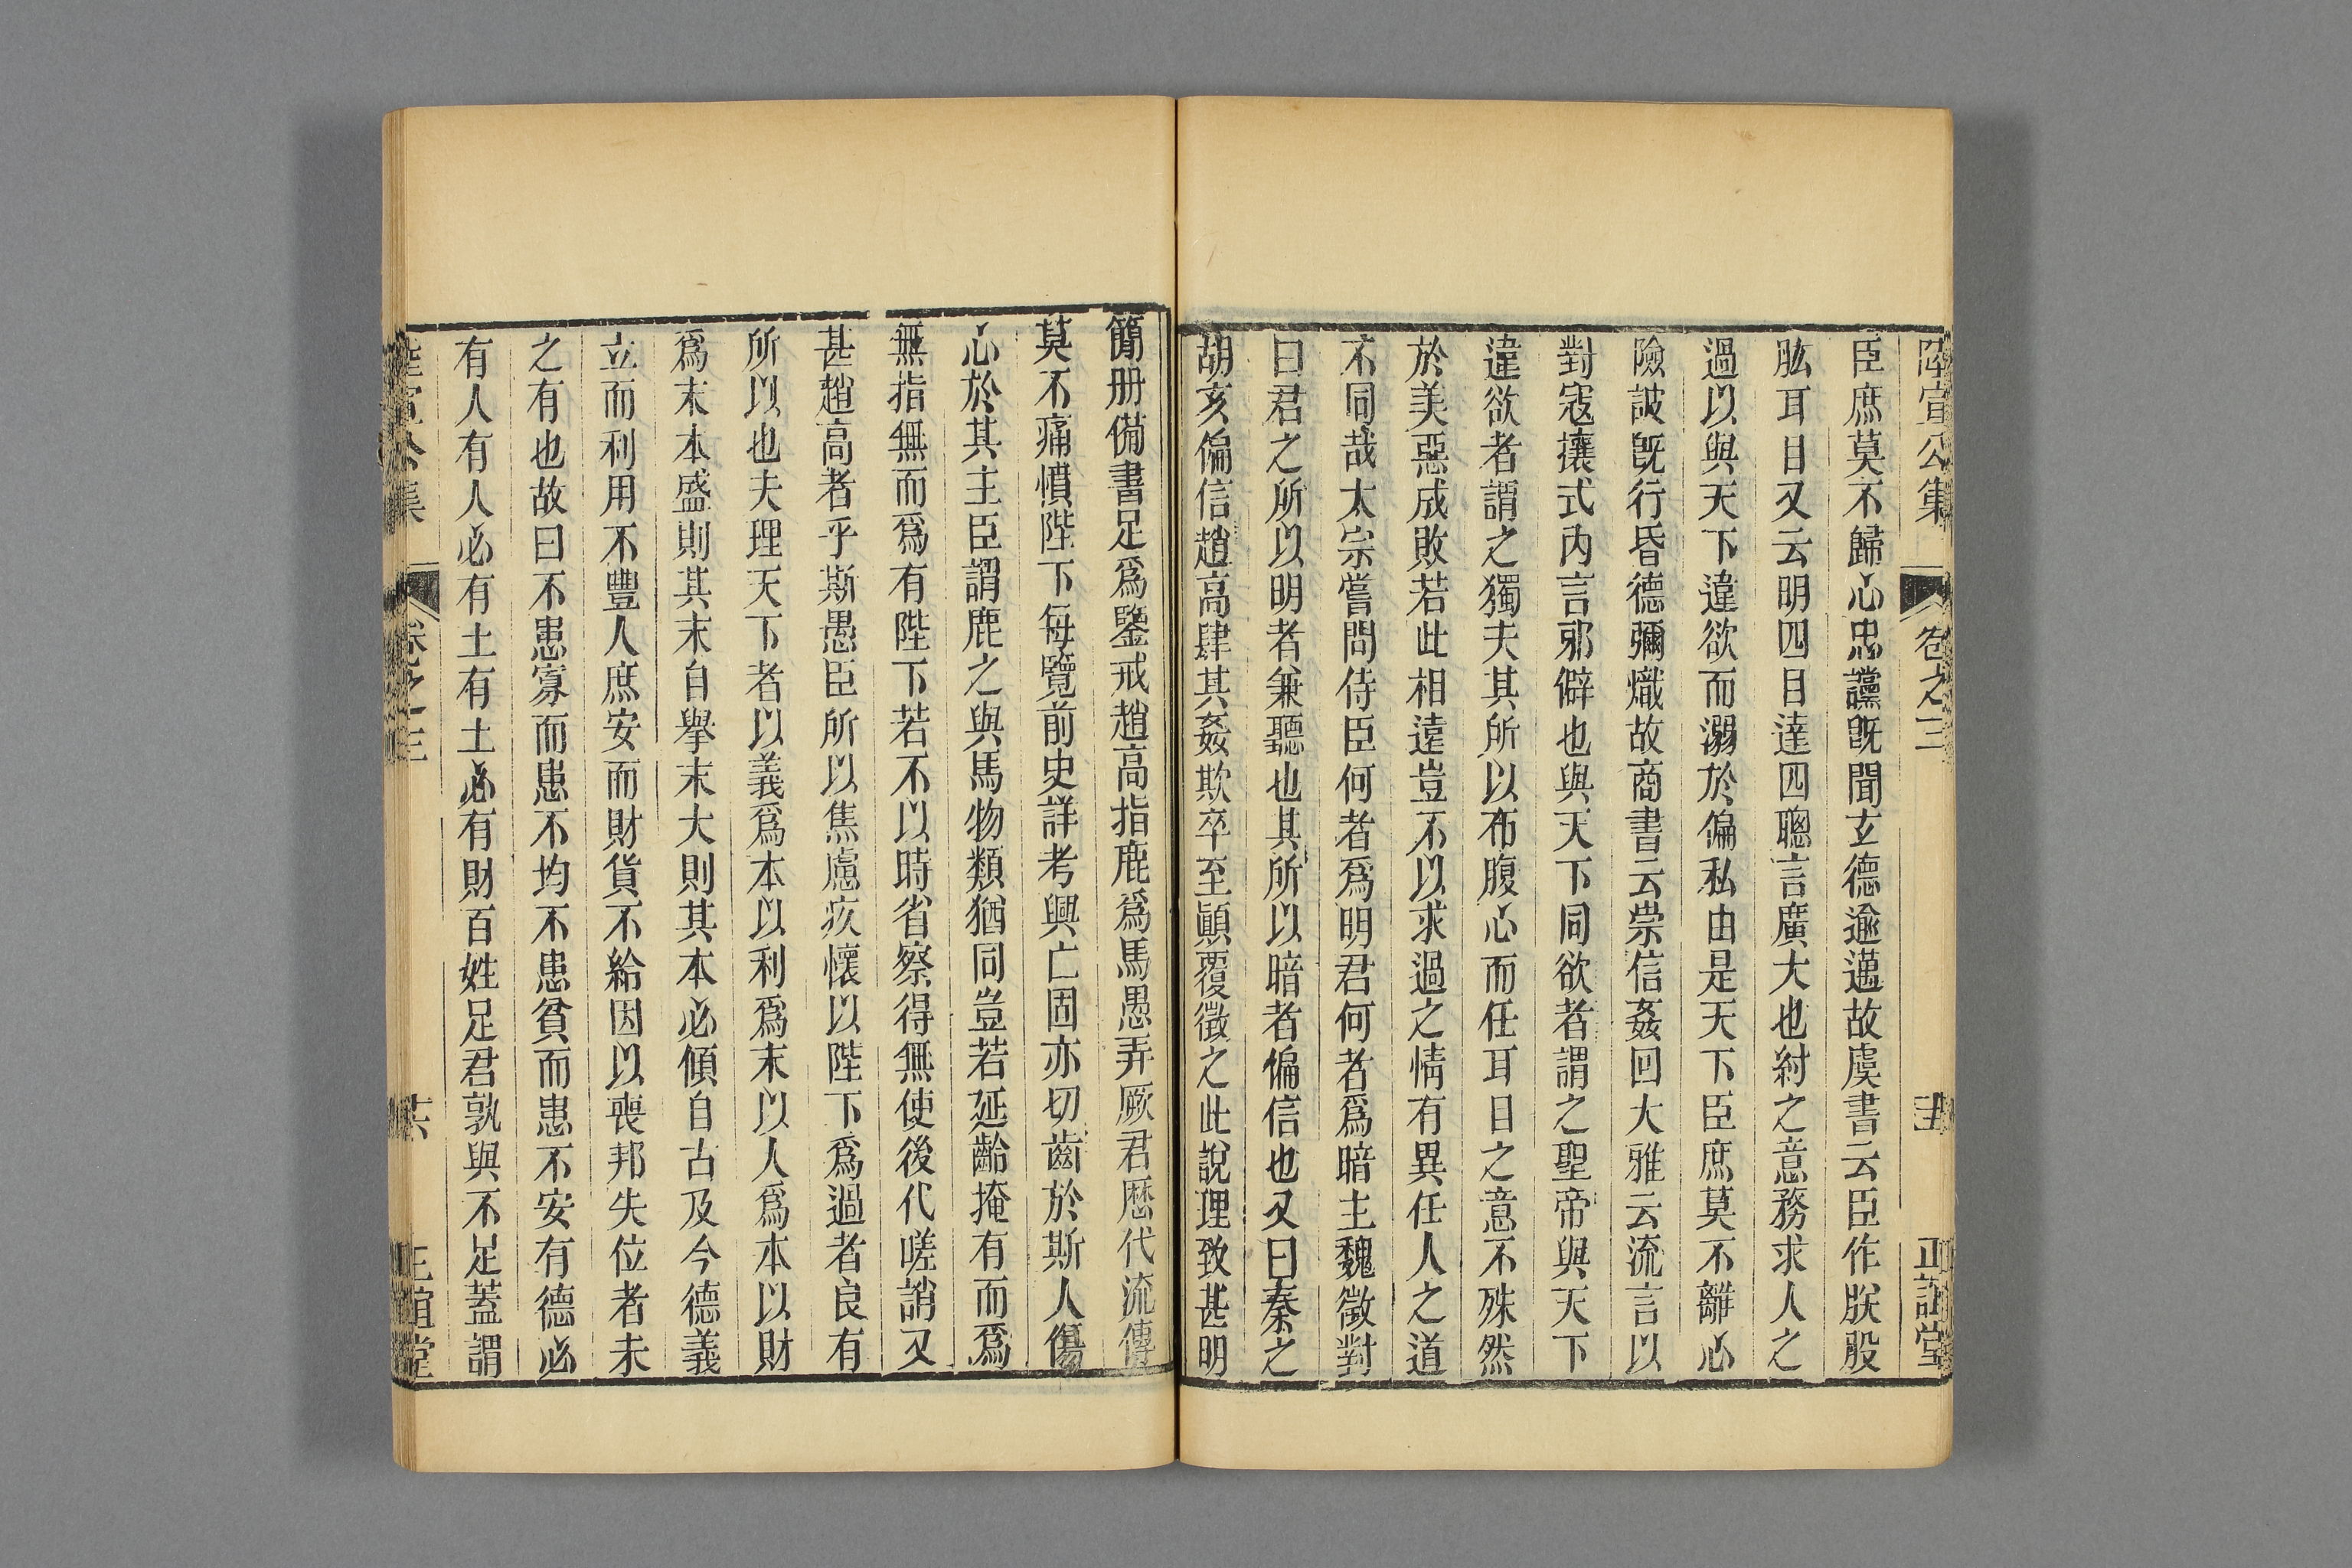 陸宣公集 卷之三 五 正誼堂
臣庶莫不歸心忠讜既聞玄德逾邁故虞書云臣作朕股
肱耳目又云明四目達四聰言廣大也紂之意務求人之
過以與天下違欲而溺於偏私由是天下臣庶莫不離心
險詖旣行昏德彌熾故商書云崇信姦回大雅云流言以
對寇攘式內言邪僻也與天下同欲者謂之聖帝與天下
違欲者謂之獨夫其所以布腹心而任耳目之意不殊然
於美惡成敗若此相遠豈不以求過之情有異任人之道
不同哉太宗嘗問侍臣何者爲明君何者爲暗主魏徵對
曰君之所以明者兼聽也其所以暗者偏信也又曰秦之
胡亥偏信趙高肆其姦欺卒至顚覆徵之此說理致甚明
簡册備書足爲鑒戒趙高指鹿爲馬愚弄厥君歷代流傳
莫不痛憤陛下每覽前史詳考興亡固亦切齒於斯人傷
心於其主臣謂鹿之與馬物類猶同豈若延齡掩有而爲
無指無而爲有陛下若不以時省察得無使後代嗟誚又
甚趙高者乎斯愚臣所以焦慮疚懷以陛下爲過者良有
所以也夫理天下者以義爲本以利爲末以人爲本以財
爲末本盛則其末自舉末大則其本必傾自古及今德義
立而利用不豐人庶安而財貨不給因以喪邦失位者未
之有也故曰不患寡而患不均不患貧而患不安有德必
有人有人必有土有土必有財百姓足君孰與不足蓋謂
陸宣公集 卷之三 六 正誼堂